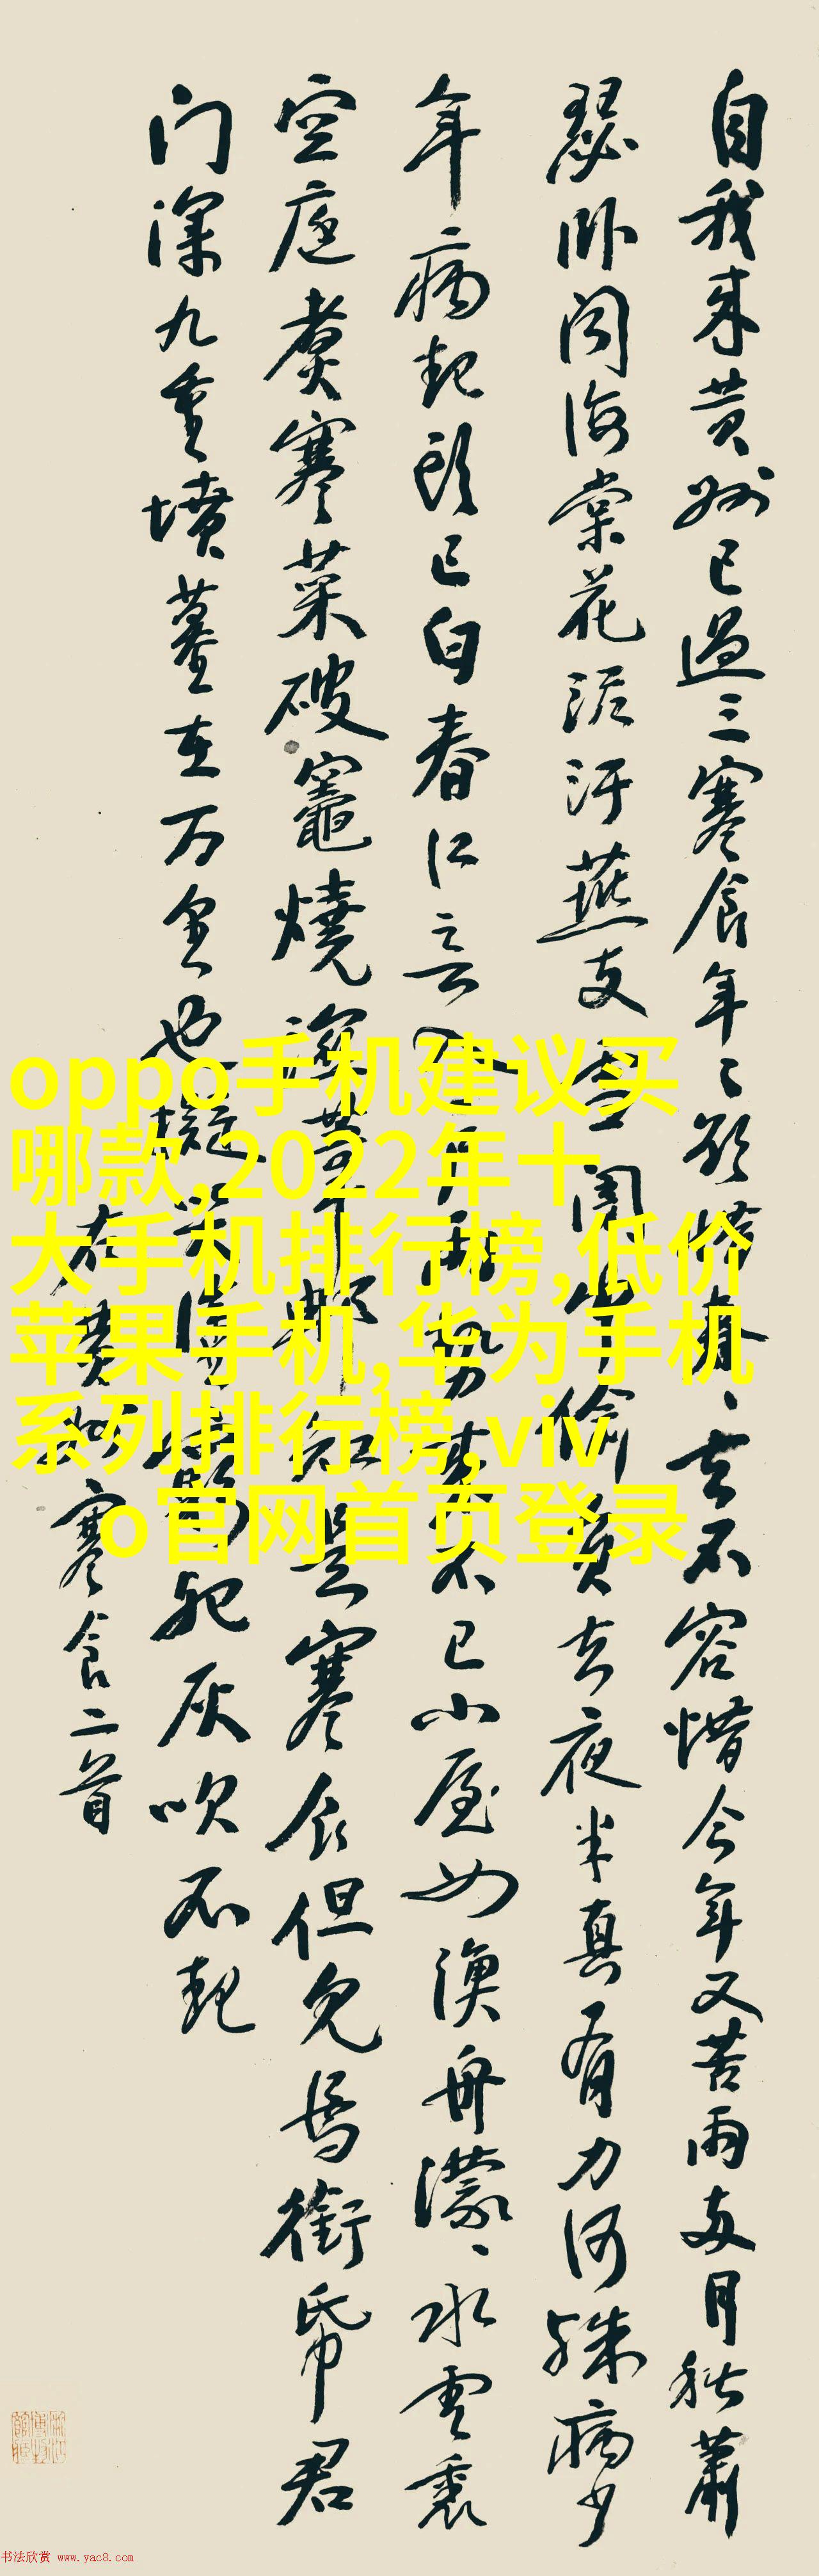 自我来黄州已過三寒食年々欲惜春々去不容惜今年又苦雨兩月秋蕭
瑟卧闻海棠花泥汙燕支雪闇中偷負去夜半真有力何殊病少
年病起頭已白春江入户雨勢来不已小屋如漁舟濛々水雲裏
空庖煮寒菜破竈燒濕葦那知是寒食但見烏銜帋君
门深九重墳墓在万里也擬哭塗窮死灰吹不起
右黄州寒食二首
oppo手机建议买
哪款,2022年十
大手机排行榜,低价
苹果手机,华为手机
系列排行榜,viv
o官网首页登录
书法欣赏 www.yac8.com